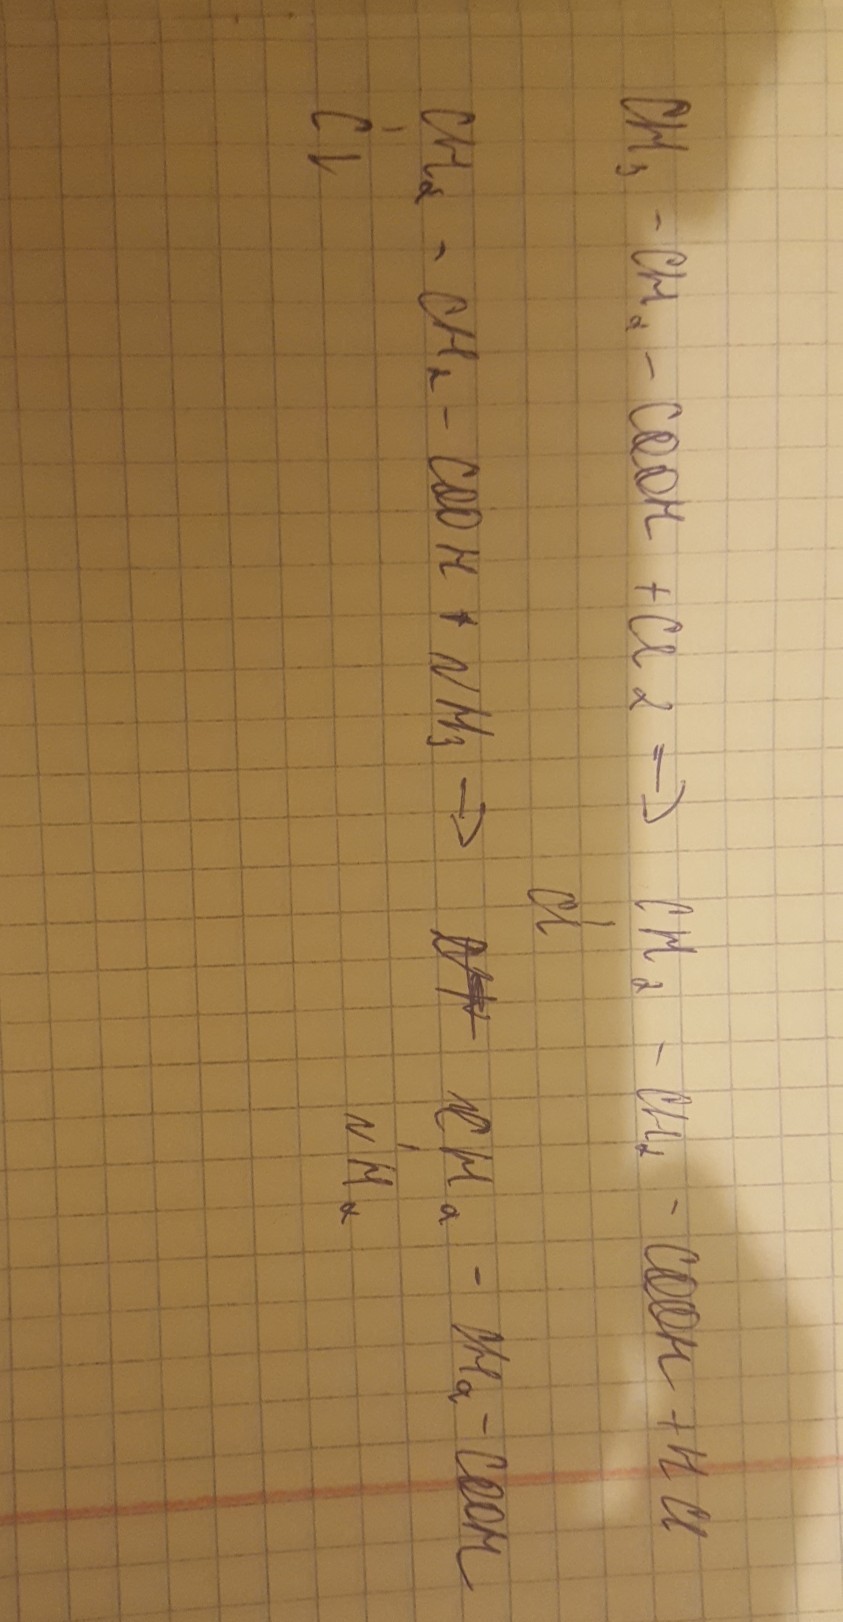 CH₃ - CH₂ - COOH + Cl₂ => CH₂ - CH₂ - COOH + HCl
Cl
CH₂ - CH₂ - COOH + NH₃ -> CH₂ - CH₂ - COOH
Cl NH₂